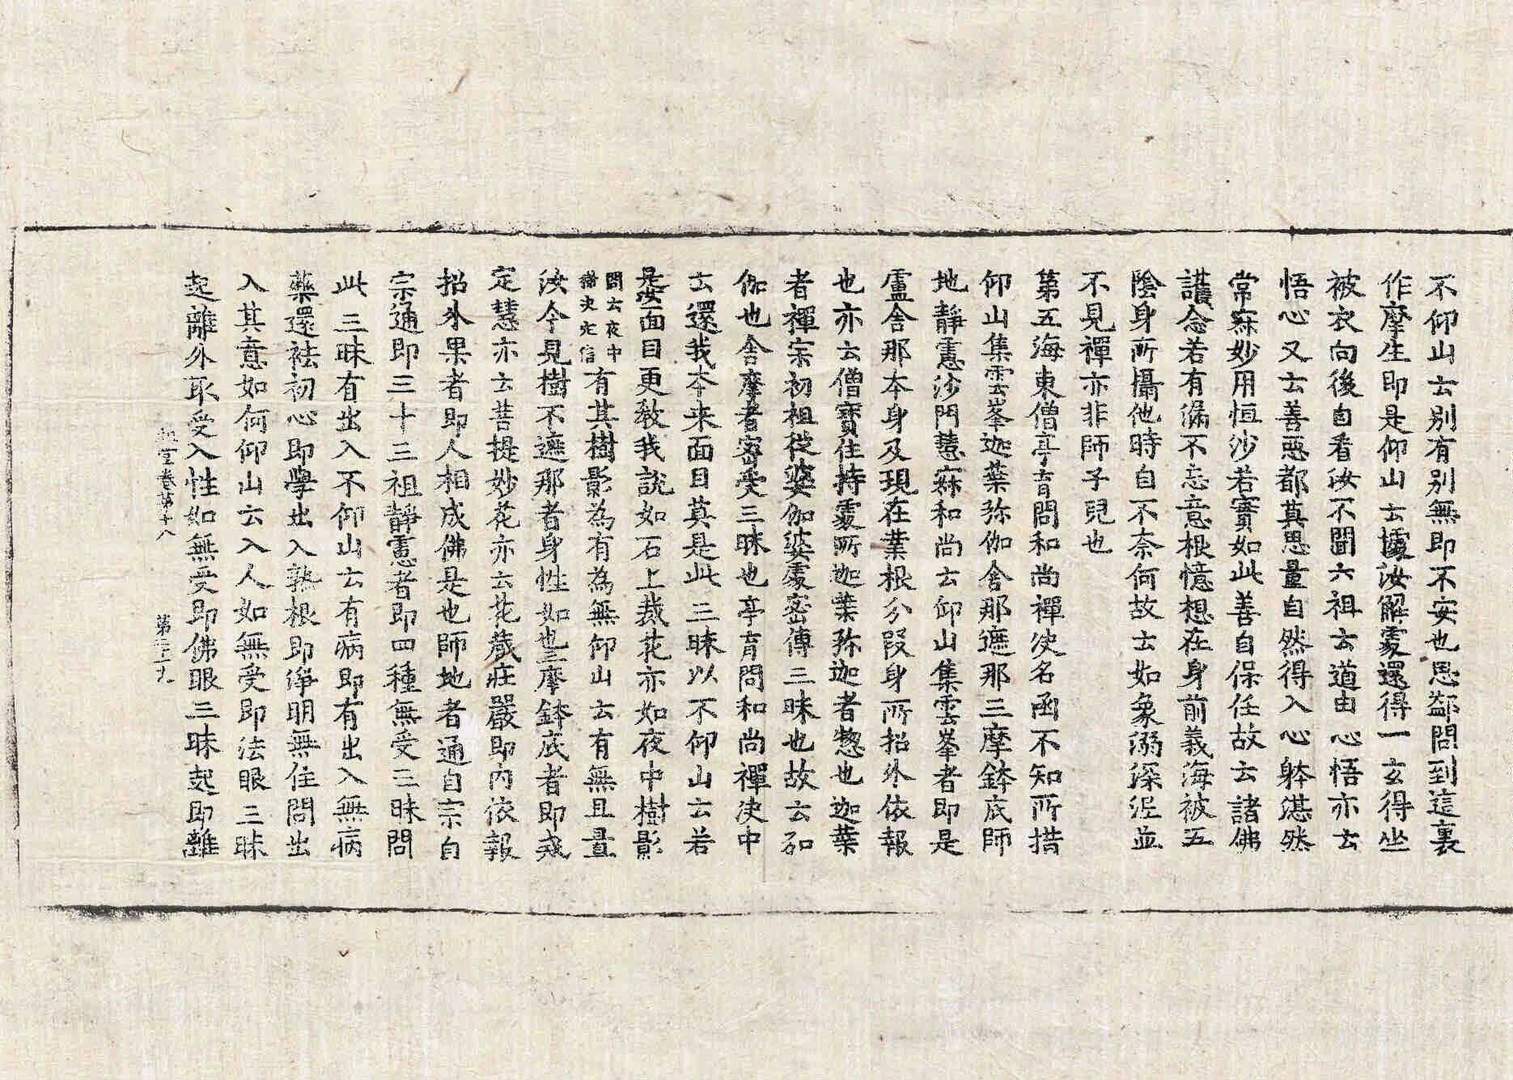 不仰山云別有別無即不安也思䣉問到這裏
作摩生即是仰山云據汝解處還得一玄得坐
被衣向後自看汝不聞六祖云道由心悟亦云
悟心又云善惡都莫思量自然得入心躰湛然
常寂妙用恒沙若實如此善自保任故云諸佛
護念若有漏不忘意根憶想在身前義海被五
陰身所攝他時自不奈何故云如象溺深泥並
不見禪亦非師子兒也
第五海東僧亭育問和尚禪決名函不知所措
仰山集雲峯迦葉弥伽舍那遮那三摩鉢底師
地靜慮沙門慧寂和尚云仰山集雲峯者即是
盧舍那本身及現在業根分段身所招外依報
也亦云僧寶住持處所迦葉弥迦者惣也迦葉
者禪宗初祖從婆伽婆處密傳三昧也故云弥
伽也舍摩者密受三昧也亭育問和尚禪決中
云還我本来面目莫是此三昧以不仰山云若
是面目更教我說如石上栽花亦如夜中樹影
問云夜中
樹決定信有其樹影為有為無仰山云有無且置
汝今見樹不遮那者身性如也三摩鉢底者即戒
定慧亦云菩提妙花亦云花藏莊嚴即內依報
招外果者即人相成佛是也師地者通自宗自
宗通即三十三祖靜慮者即四種無受三昧問
此三昧有出入不仰山云有病即有出入無病
藥還袪初心即學出入熟根即淨明無住問出
入其意如何仰山云入人如無受即法眼三昧
起離外取受入性如無受即佛眼三昧起即離
祖堂卷第十八　第三十九